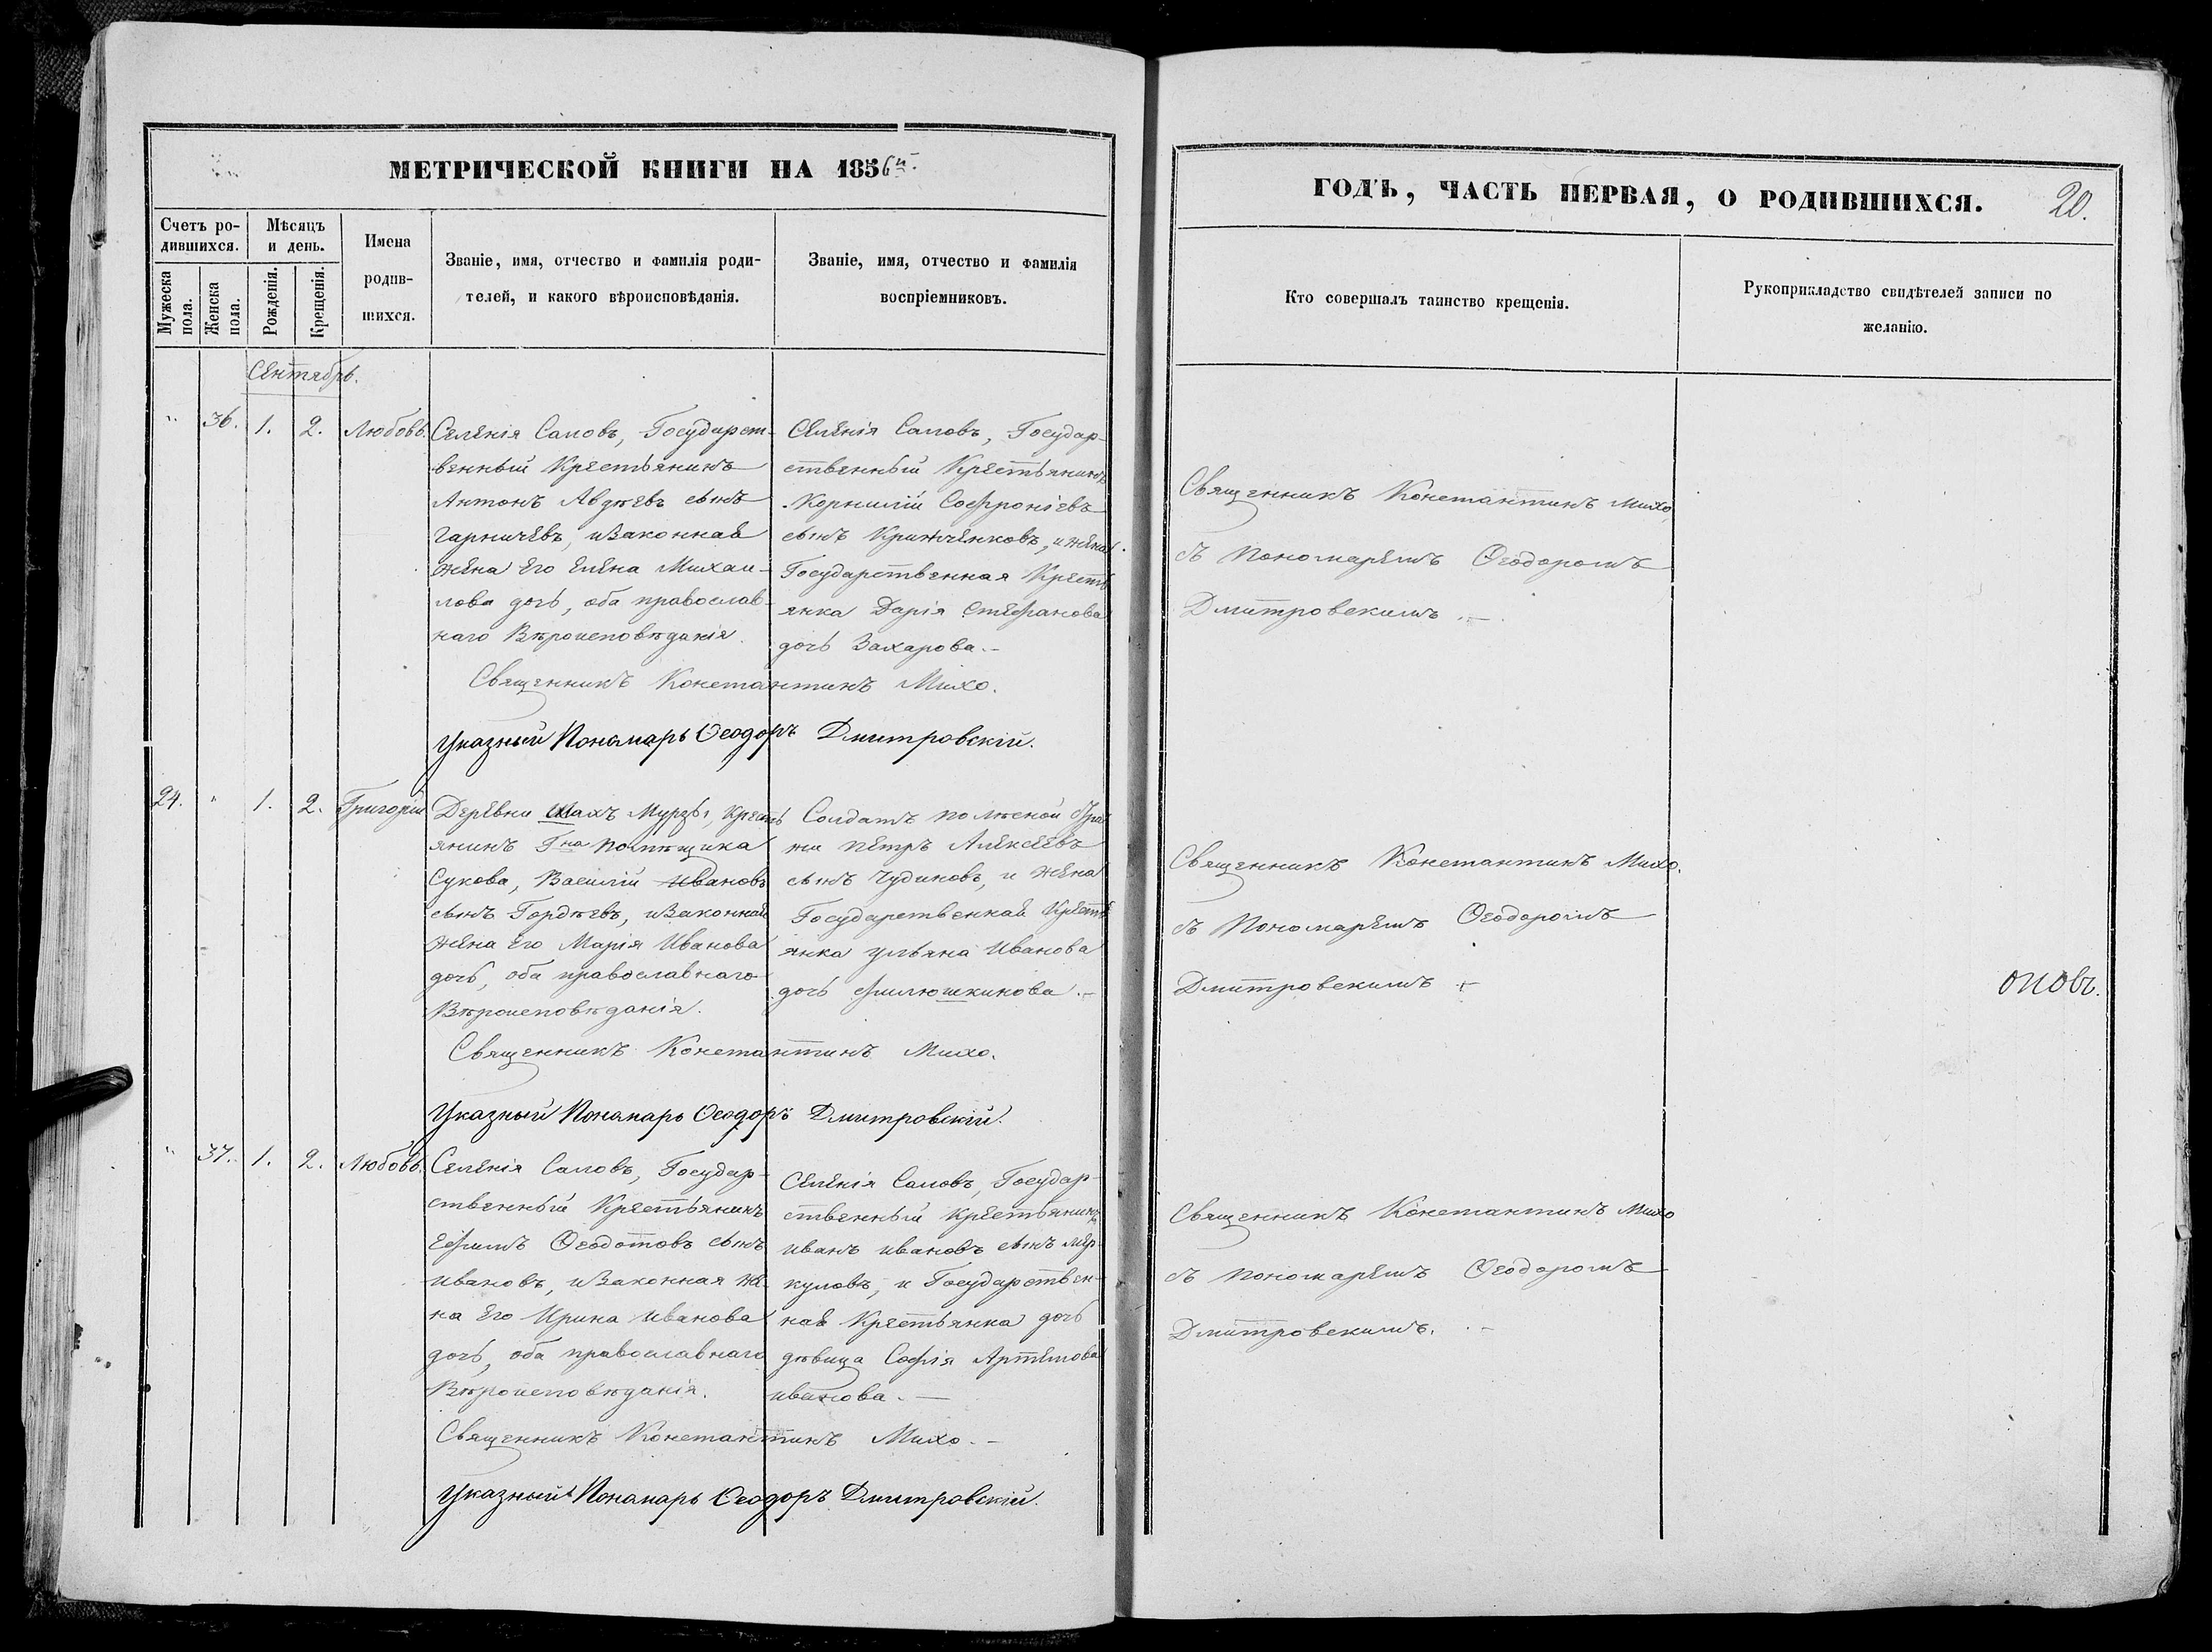 МЕТРИЧЕСКОЙ КНИГИ НА 1856
Счетъ ро-
дившихся.
Мѣсяцъ
и день.
Имена
родив-
шихся.
Званіе, имя, отчество и фамилія роди-
телей, и какого вѣроисповѣданія.
Званіе, имя, отчество и фамилія
воспріемниковъ.
Мужеска
пола.
Женска
пола.
Рожденія.
Крещенія.
Сентябрь.
36. 1. 2. Любовь.
Селенія Саловъ, Государст-
венный Крестьянинъ
Антонъ Авдѣевъ сынъ
Гарничевъ, и Законная
жена его Елена Михаи-
лова дочь, оба православ-
наго Вѣроисповѣданія.
Селенія Саловъ, Государ-
ственный Крестьянинъ
Корнилій Софроніевъ
сынъ Кринченковъ, и жена
Государственная Кресть
янка Дарія Стефанова
дочь Захарова.-
Священникъ Константинъ Михо.
Указный Понамарь Ѳеодоръ Дмитровскій.
24. " 1. 2. Григорій
Деревни Шахъ Мурзы, Кресть
янинъ Гна Помѣщика
Сукова, Василій Ивановъ
сынъ Гордѣевъ, и Законная
жена его Марія Иванова
дочь, оба православнаго
Вѣроисповѣданія.
Солдатъ
Петръ Алексѣевъ
сынъ Чудиновъ, и жена
Государственная Кресть
янка Ульяна Иванова
дочь Филюшкинова.-
Священникъ Константинъ Михо.
Указный Понамарь Ѳеодоръ Дмитровскій.
" 37. 1. 2. Любовь.
Селенія Саловъ, Государ-
ственный Крестьянинъ
Ефимъ Ѳеодотовъ сынъ
Ивановъ, и Законная же-
на его Ирина Иванова
дочь, оба православнаго
Вѣроисповѣданія.
Селенія Саловъ, Государ-
ственный Крестьянинъ
Иванъ Ивановъ сынъ Мер-
куловъ, и Государствен-
ная Крестьянка дочь
дѣвица Софія Артемова
Иванова.-
Священникъ Константинъ Михо.-
Указный Понамарь Ѳеодоръ Дмитровскій.
ГОДЪ, ЧАСТЬ ПЕРВАЯ, О РОДИВШИХСЯ.
20.
Кто совершалъ таинство крещенія.
Рукоприкладство свидѣтелей записи по
желанію.
Священникъ Константинъ Михо,
съ Пономаремъ Ѳеодоромъ
Дмитровскимъ.-
Священникъ Константинъ Михо.
съ Пономаремъ Ѳеодоромъ
Дмитровскимъ.-
оповъ.
Священникъ Константинъ Михо
съ Пономаремъ Ѳеодоромъ
Дмитровскимъ.-